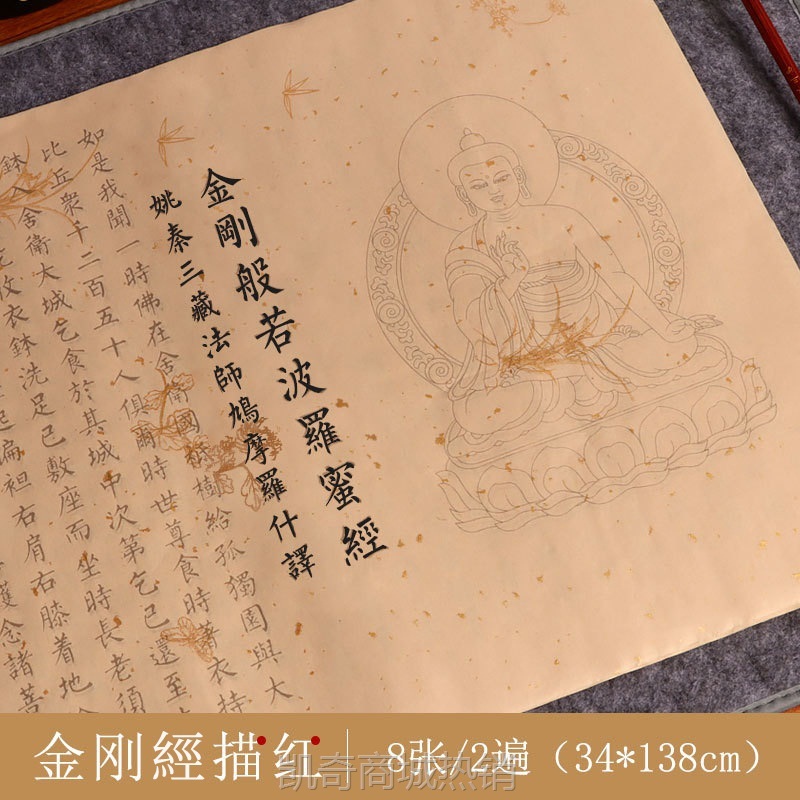 金剛般若波羅蜜經
姚秦三藏法師鳩摩羅什譯
如是我聞一時佛在舍衛國祇樹給孤獨園與大
比丘衆千二百五十人俱爾時世尊食時著衣持
鉢入舍衛大城乞食於其城中次第乞已還至
收衣鉢洗足已敷座而坐時長老須
起偏袒右肩右膝着地
護念諸菩
金刚經描红
8张/2遍（34*138cm）
凯奇商城热销